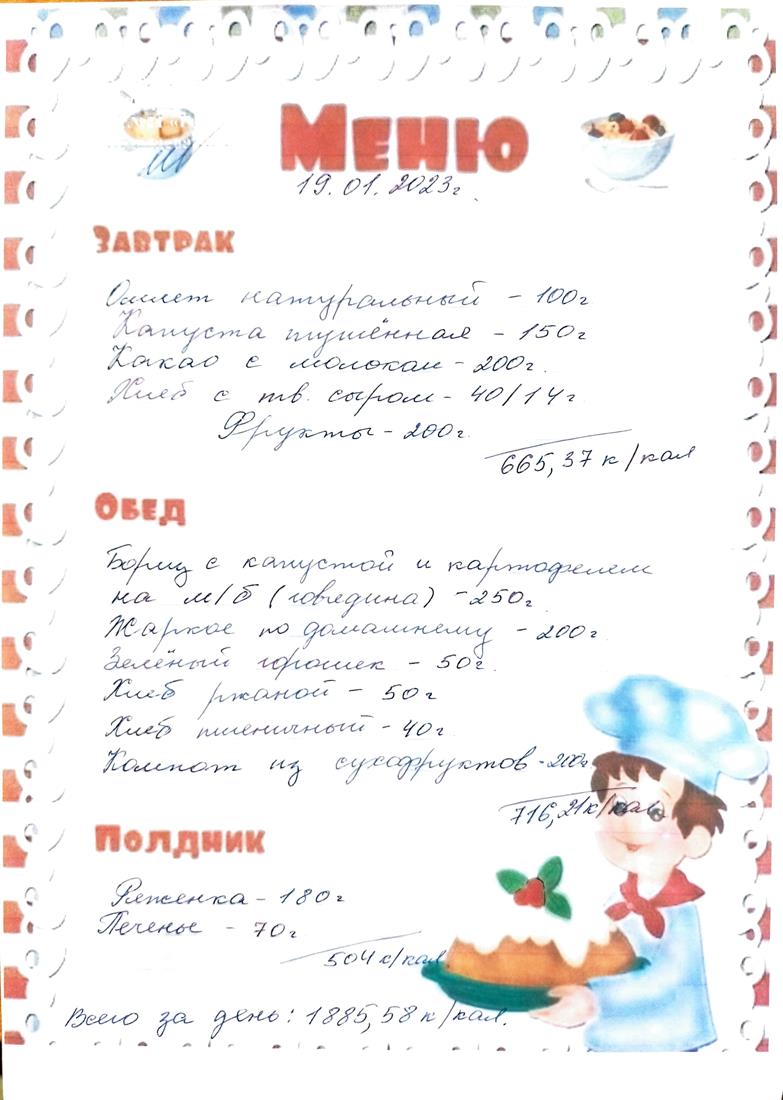 Меню
19.01.2023г.
Завтрак
Омлет натуральный - 100г
Капуста тушённая - 150г
Какао с молоком - 200г.
Хлеб с тв. сыром - 40/14г.
Фрукты - 200г.
665,37 к/кал
Обед
Борщ с капустой и картофелем
на м/б (говядина) - 250г.
Жаркое по домашнему - 200г.
Зелёный горошек - 50г.
Хлеб ржаной - 50г
Хлеб пшеничный - 40г.
Компот из сухофруктов - 200г.
716,21 к/кал.
Полдник
Ряженка - 180г
Печенье - 70г
504 к/кал
Всего за день: 1885,58 к/кал.